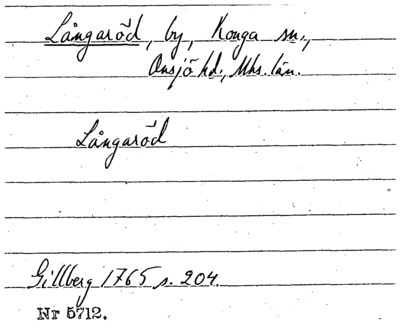 Långaröd, by, Konga sn.,
Onsjö hd., Mhs. län.
Långaröd
Gillberg 1765 s. 204.
Nr 5712.